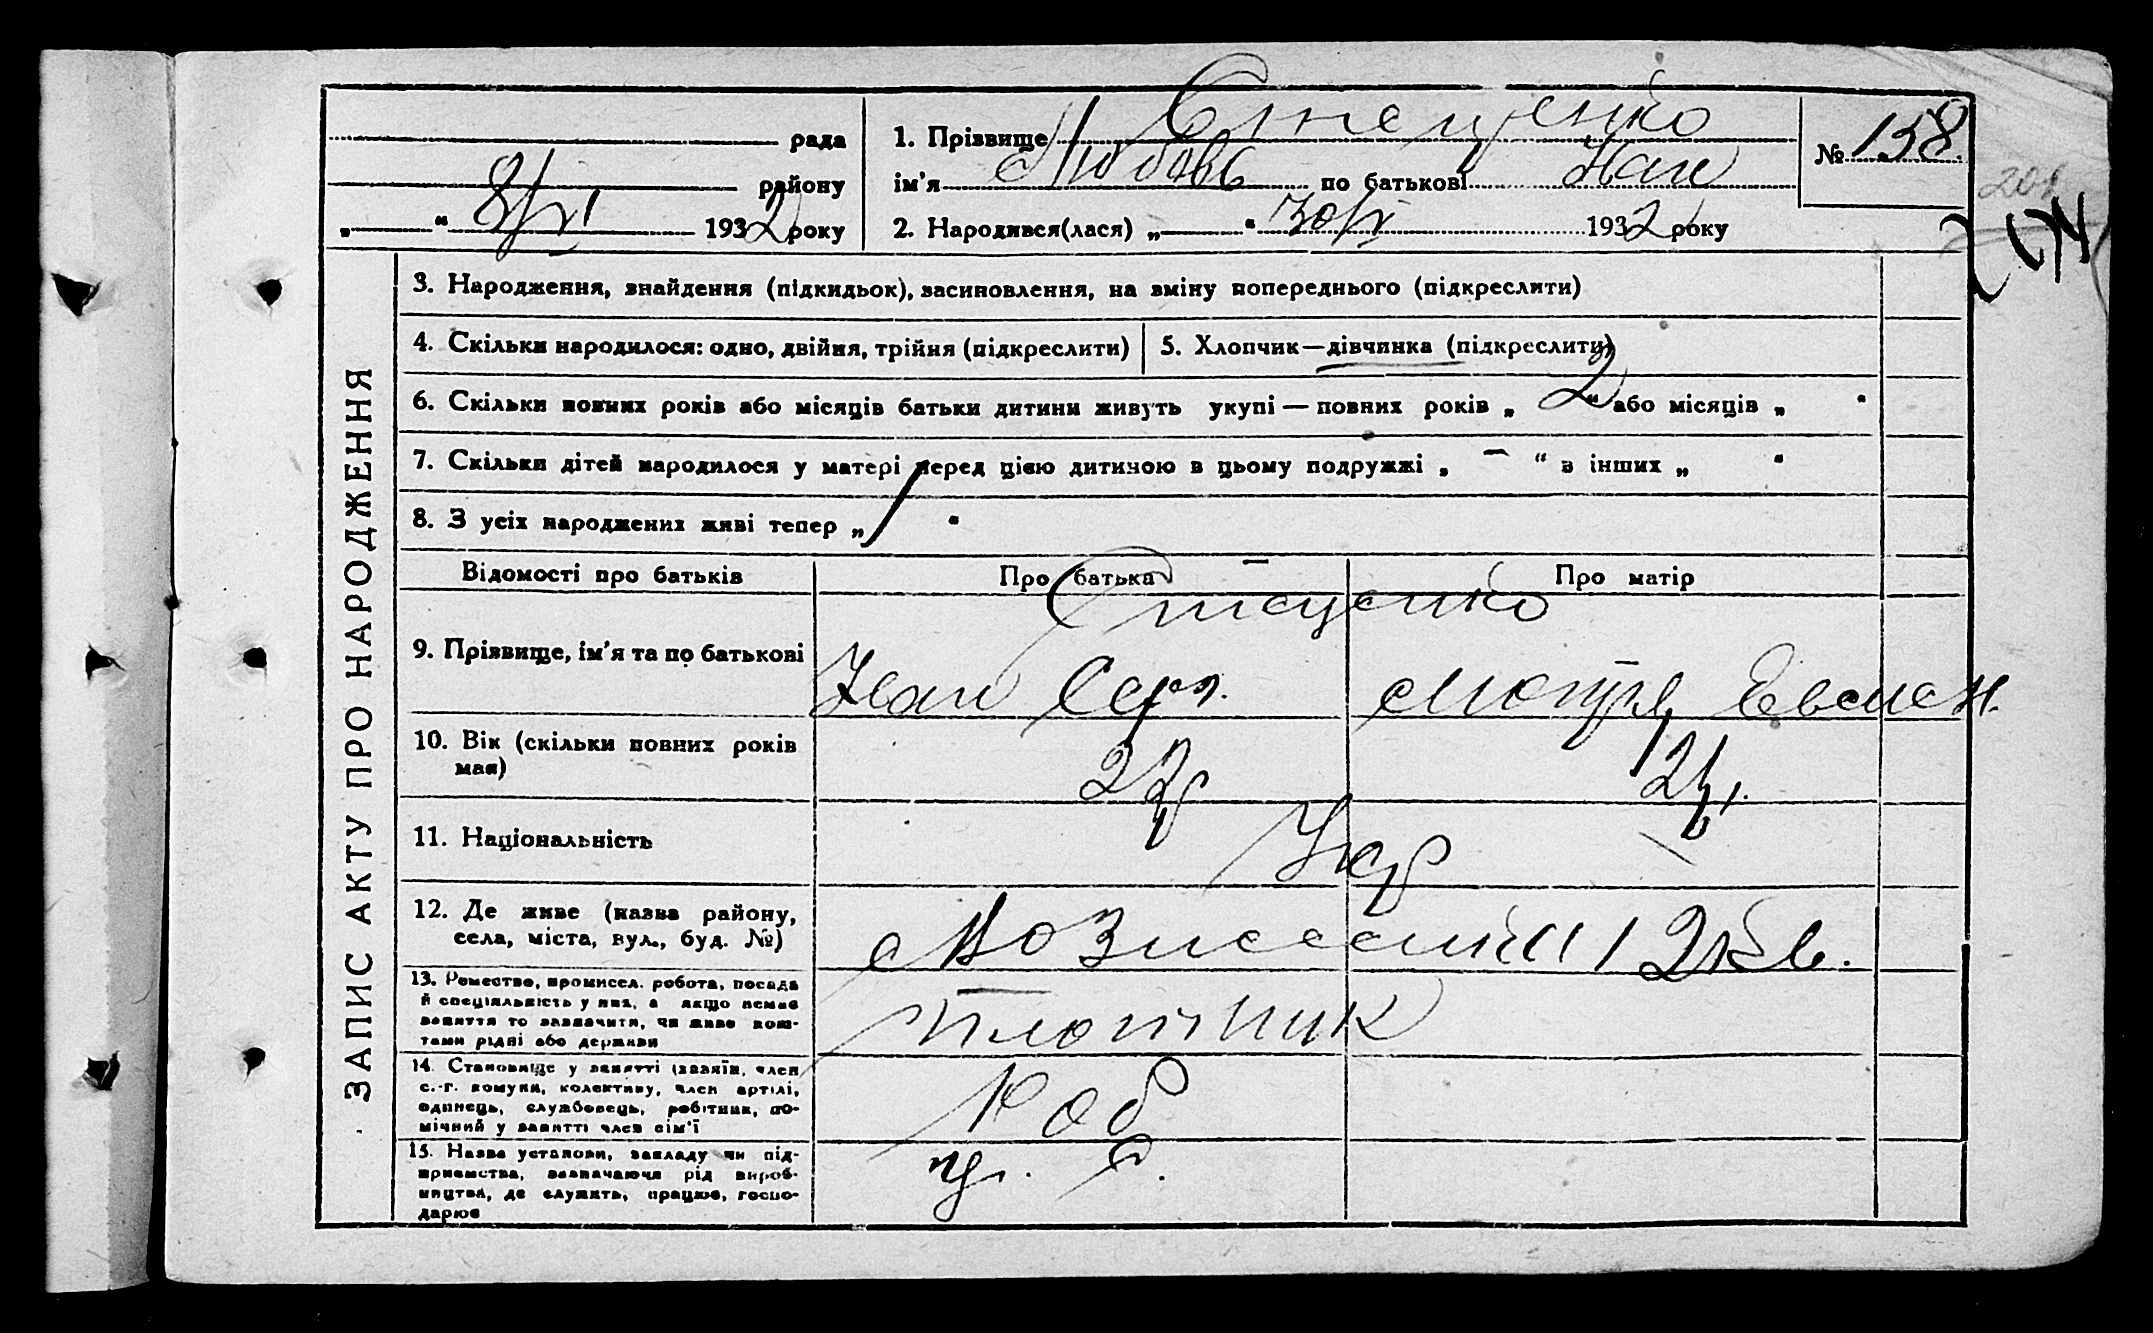 рада
району
„ “ 8/VI 1932 року
1. Прізвище Стеценко
ім’я Любовь по батькові Иван
2. Народився(лася) „ “ 30/V 1932 року
№ 158.
201
ЗАПИС АКТУ ПРО НАРОДЖЕННЯ
3. Народження, знайдення (підкидьок), засиновлення, на зміну попереднього (підкреслити)
4. Скільки народилося: одно, двійня, трійня (підкреслити)
5. Хлопчик—дівчинка (підкреслити)
6. Скільки повних років або місяців батьки дитини живуть укупі — повних років „ 2 “ або місяців „ “
7. Скільки дітей народилося у матері перед цією дитиною в цьому подружжі „ — “ з інших „ “
8. З усіх народжених живі тепер „ / “
Відомості про батьків
Про батька
Про матір
9. Прізвище, ім’я та по батькові
Стеценко
Иван Серг.
Мотря Евмен.
10. Вік (скільки повних років
має)
27
24
11. Національність
Укр
12. Де живе (назва району,
села, міста, вул., буд. №)
13. Ремество, промисел. робота, посада
й спеціяльність у них, а якщо немає
заняття то зазначити, чи живе кош-
тами рідні або держави
плотник
14. Становище у занятті (хазяїн, член
с.-г. комуни, колективу, член артілі,
одинець, службовець, робітник, по-
мічний у занятті член сім’ї
Роб
15. Назва установи, закладу чи під-
приємства, зазначаючи рід вироб-
ництва, де служить, працює, госпо-
дарює